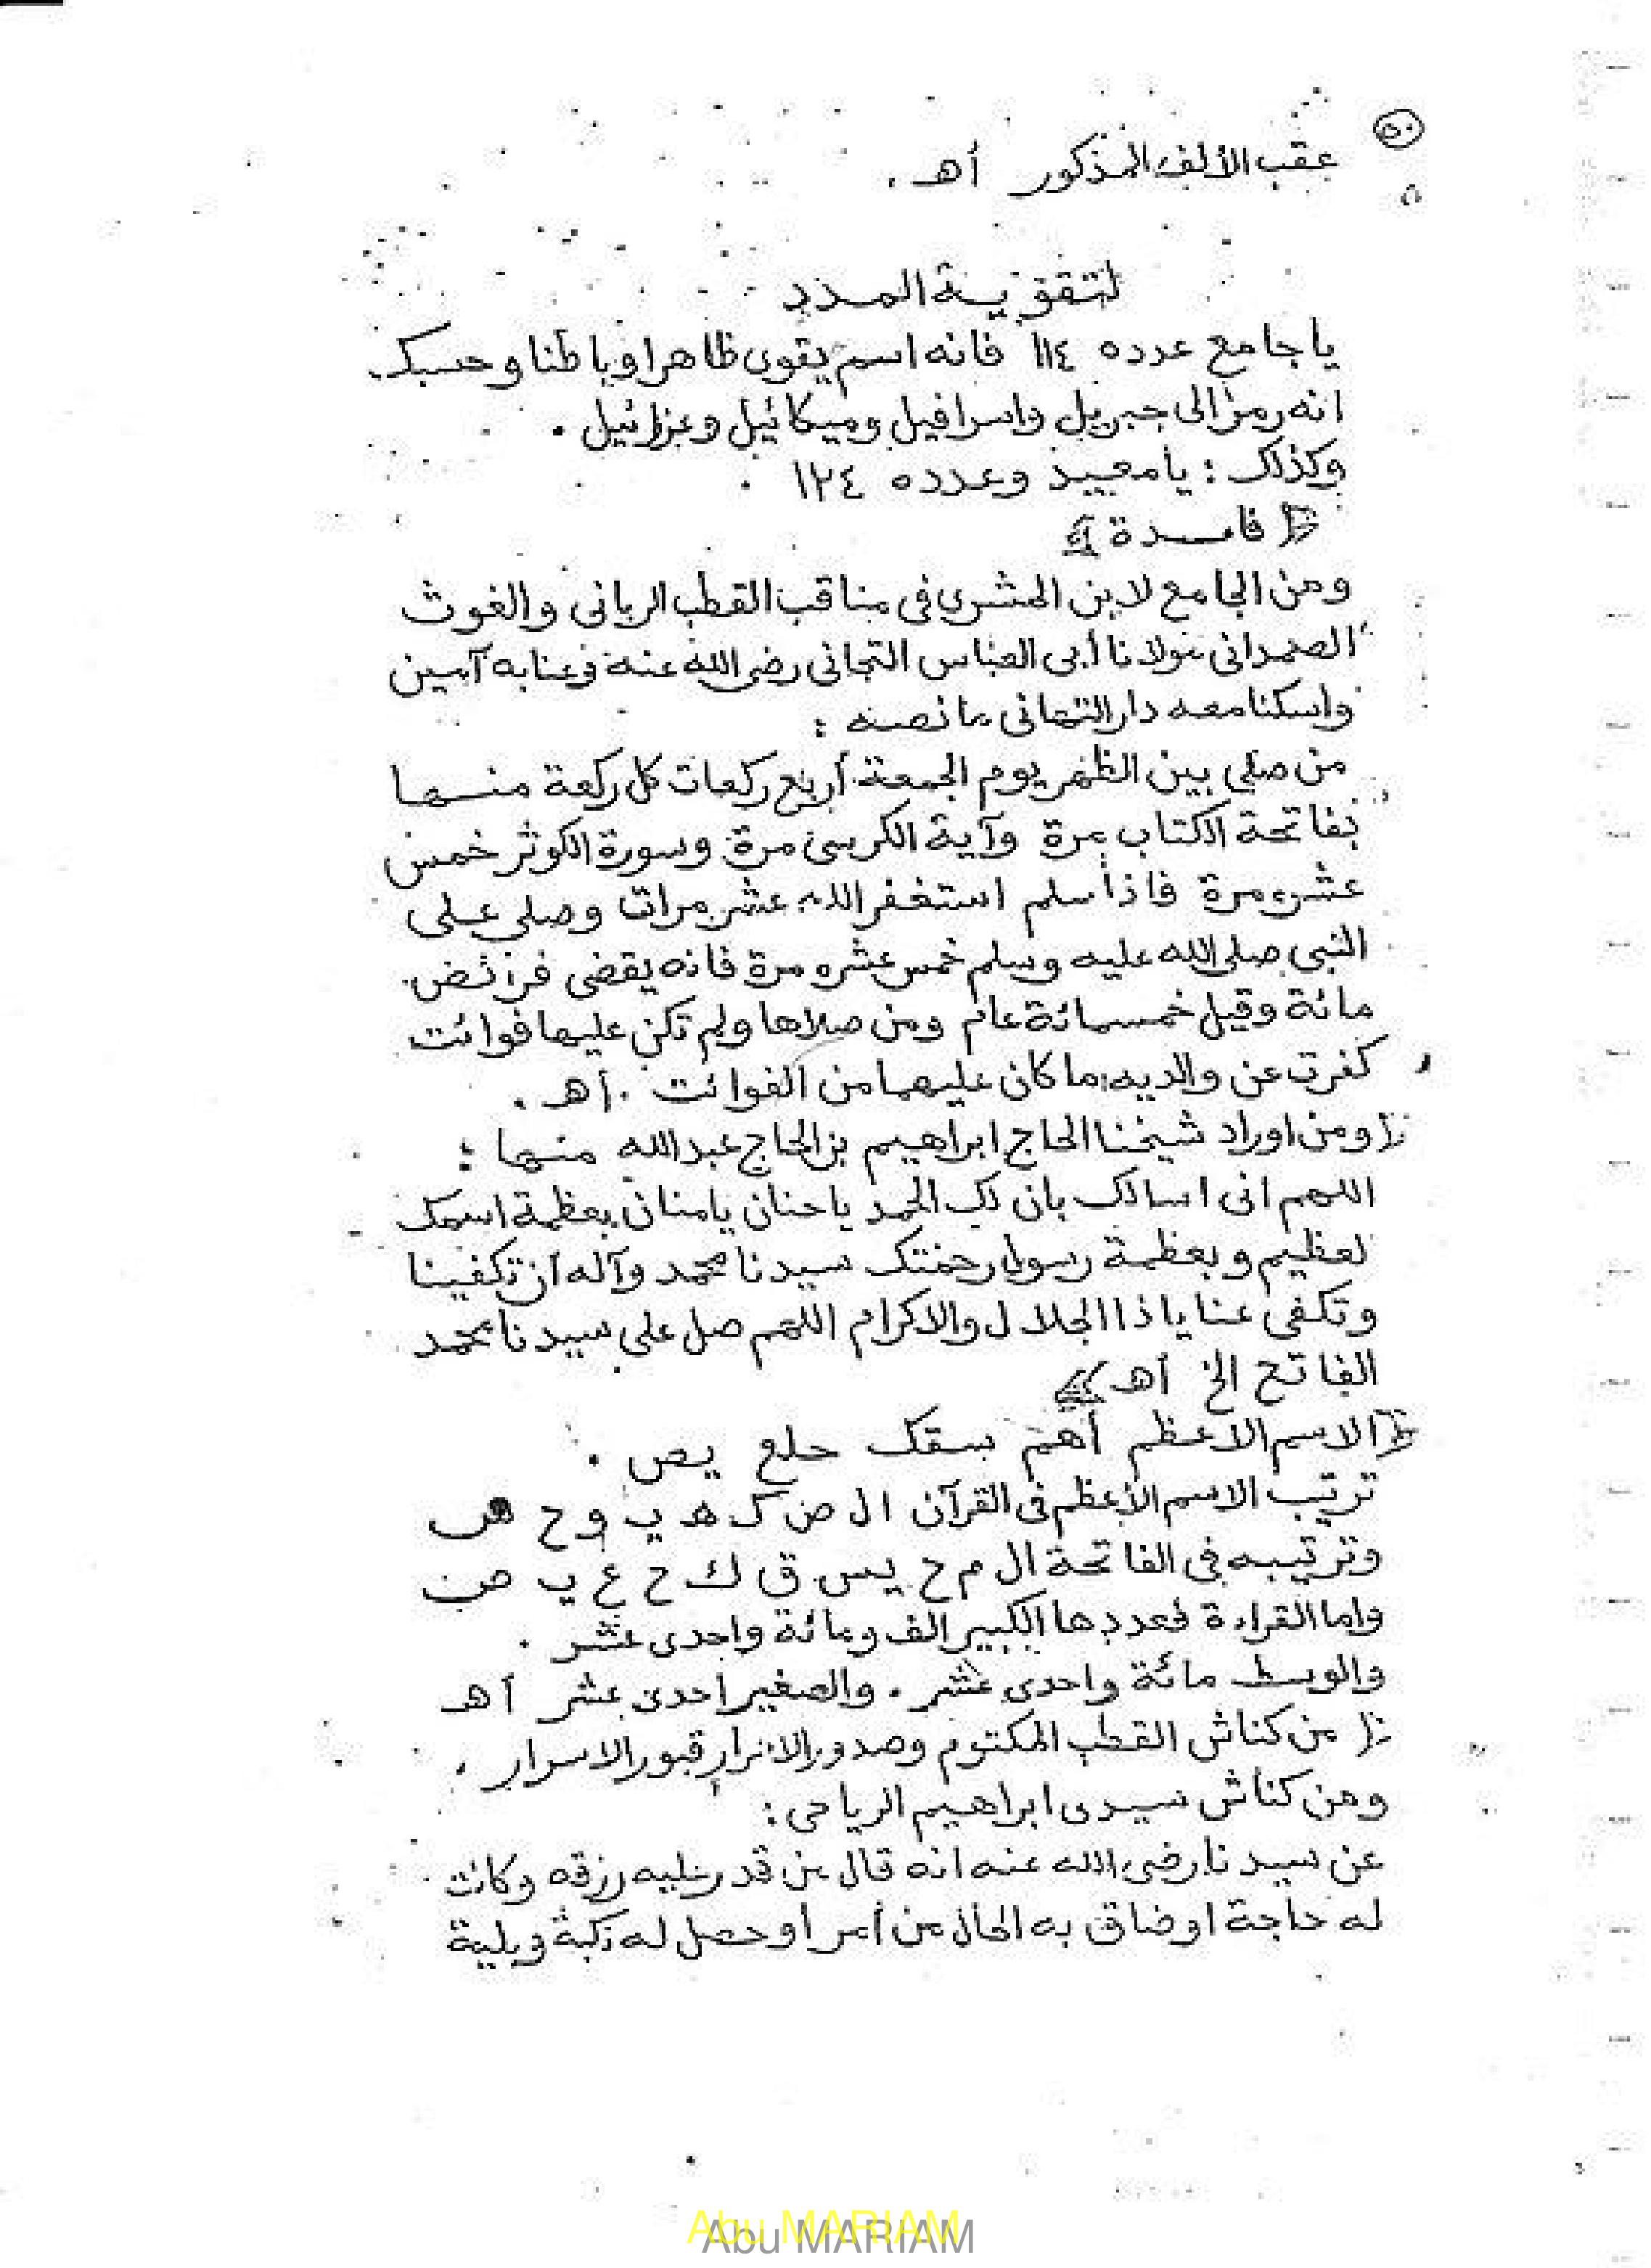 ٥٠
عقب الألف المذكور أهـ .
لتقوية المدد
يا جامع عدده ١١٤ فانه اسم يقوى ظاهرا وباطنا وحسبك
انه رمز الى جبريل واسرافيل وميكائيل وعزرائيل .
وكذلك : يا معيد وعدده ١٢٤ .
فائدة
ومن الجامع لابن المشرى فى مناقب القطب الربانى والغوث
الصمدانى مولانا أبى العباس التجانى رضى الله عنه وعنا به آمين
واسكنا معه دار التهانى ما نصه :
من صلى بين الظهر يوم الجمعة أربع ركعات كل ركعة منها
بفاتحة الكتاب مرة وآية الكرسى مرة وسورة الكوثر خمس
عشره مرة فاذا سلم استغفر الله عشر مرات وصلى على
النبى صلى الله عليه وسلم خمس عشره مرة فانه يقضى فرائض
مائة وقيل خمسمائة عام ومن صلاها ولم تكن عليها فوائت
كفرت عن والديه ما كان عليهما من الفوائت . أهـ .
ومن اوراد شيخنا الحاج ابراهيم بن الحاج عبدالله منها :
اللهم انى اسالك بان لك الحمد يا حنان يا منان بعظمة اسمك
لعظيم وبعظمة رسول رحمتك سيدنا محمد وآله ان تكفينا
وتكفى عنا يا ذا الجلال والاكرام اللهم صل على سيدنا محمد
الفاتح الخ أهـ
الاسم الاعظم أهم سقك حلع يص .
ترتيب الاسم الأعظم فى القرآن ا ل ص ك ه ي و ح
وترتيبه فى الفاتحة ال م ح يس ق ك ح ع ي ص
واما القراءة فعددها الكبير الف ومائة واحدى عشر .
والوسط مائة واحدى عشر . والصغير احدى عشر أهـ
من كناش القطب المكتوم وصدور الابرار قبور الاسرار .
ومن كناش سيدى ابراهيم الرياحى :
عن سيدنا رضى الله عنه انه قال من قدر عليه رزقه وكانت
له حاجة او ضاق به الحال من أمر أو حصل له نكبة وبلية
Abu MARIAM
Abu MARIAM